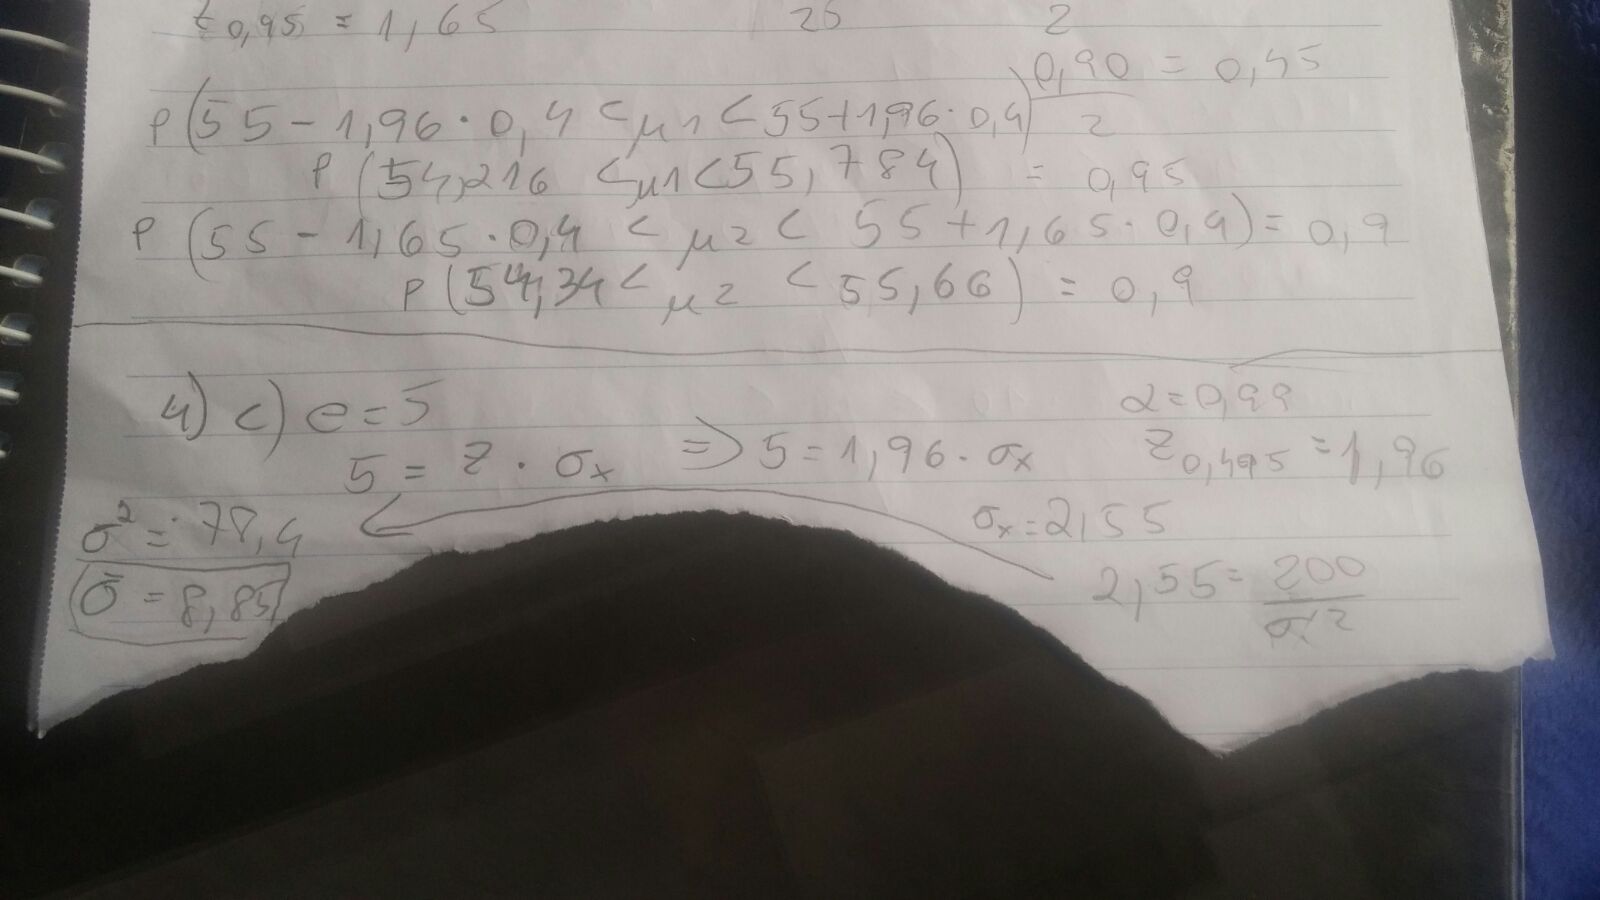 z 0,95 = 1,65 25 2
0,90 = 0,45
P(55 - 1,96 · 0,4 < μ1 < 55 + 1,96 · 0,4) 2
P(54,216 < μ1 < 55,784) = 0,95
P(55 - 1,65 · 0,4 < μ2 < 55 + 1,65 · 0,4) = 0,9
P(54,34 < μ2 < 55,66) = 0,9
4) c) e = 5 α = 0,99
5 = Z · σx => 5 = 1,96 · σx Z0,495 = 1,96
σ² = 78,4 σx = 2,55
σ = 8,85 2,55 = 200
σ²